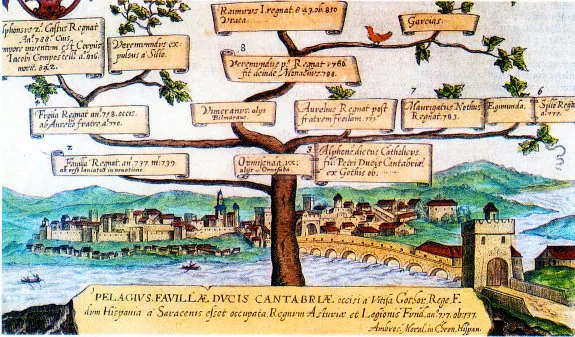 Raimirus I. regnat 843. ob. 850
Vrata.
Garcias.
Alphonsus 2.s Castus Regnat
An.º 788. Cuius
tempore inventum est Corpus
Iacobi Compostell. aº
mort. 842.
Veremundus ex-
pulsus a Silo.
8
Veremundus p.s Regnat 1786.
fit deinde Monachus. 788.
4
Froila Regnat an.º 758. occis.
ab Aurelio fratre aº 770.
Vimeranus. alijs
Bilmaranus.
Aurelius Regnat post
fratrem froilam. 775
7
Mauregatus Nothus
Regnat. 783.
Egimunda.
6
Silo Regn
aº 777.
2
Favila Regnat. an. 737. m. 739.
ab urso laniatus in venatione.
Ormisinda. ux:
alijs Ormisenda
3
Alphons. dictus Catholicus
fil: Petri Ducis Cantabriæ
ex Gothis ob.
PELAGIVS. FAVILLÆ DVCIS CANTABRIÆ occisi a Vitisa Gothor. Rege F.
dum Hispania a Saracenis esset occupata. Regnum Asturiæ et Legionis Fund. an. 717. ob. 737.
Ambros. Moral. in Chron. Hispan.